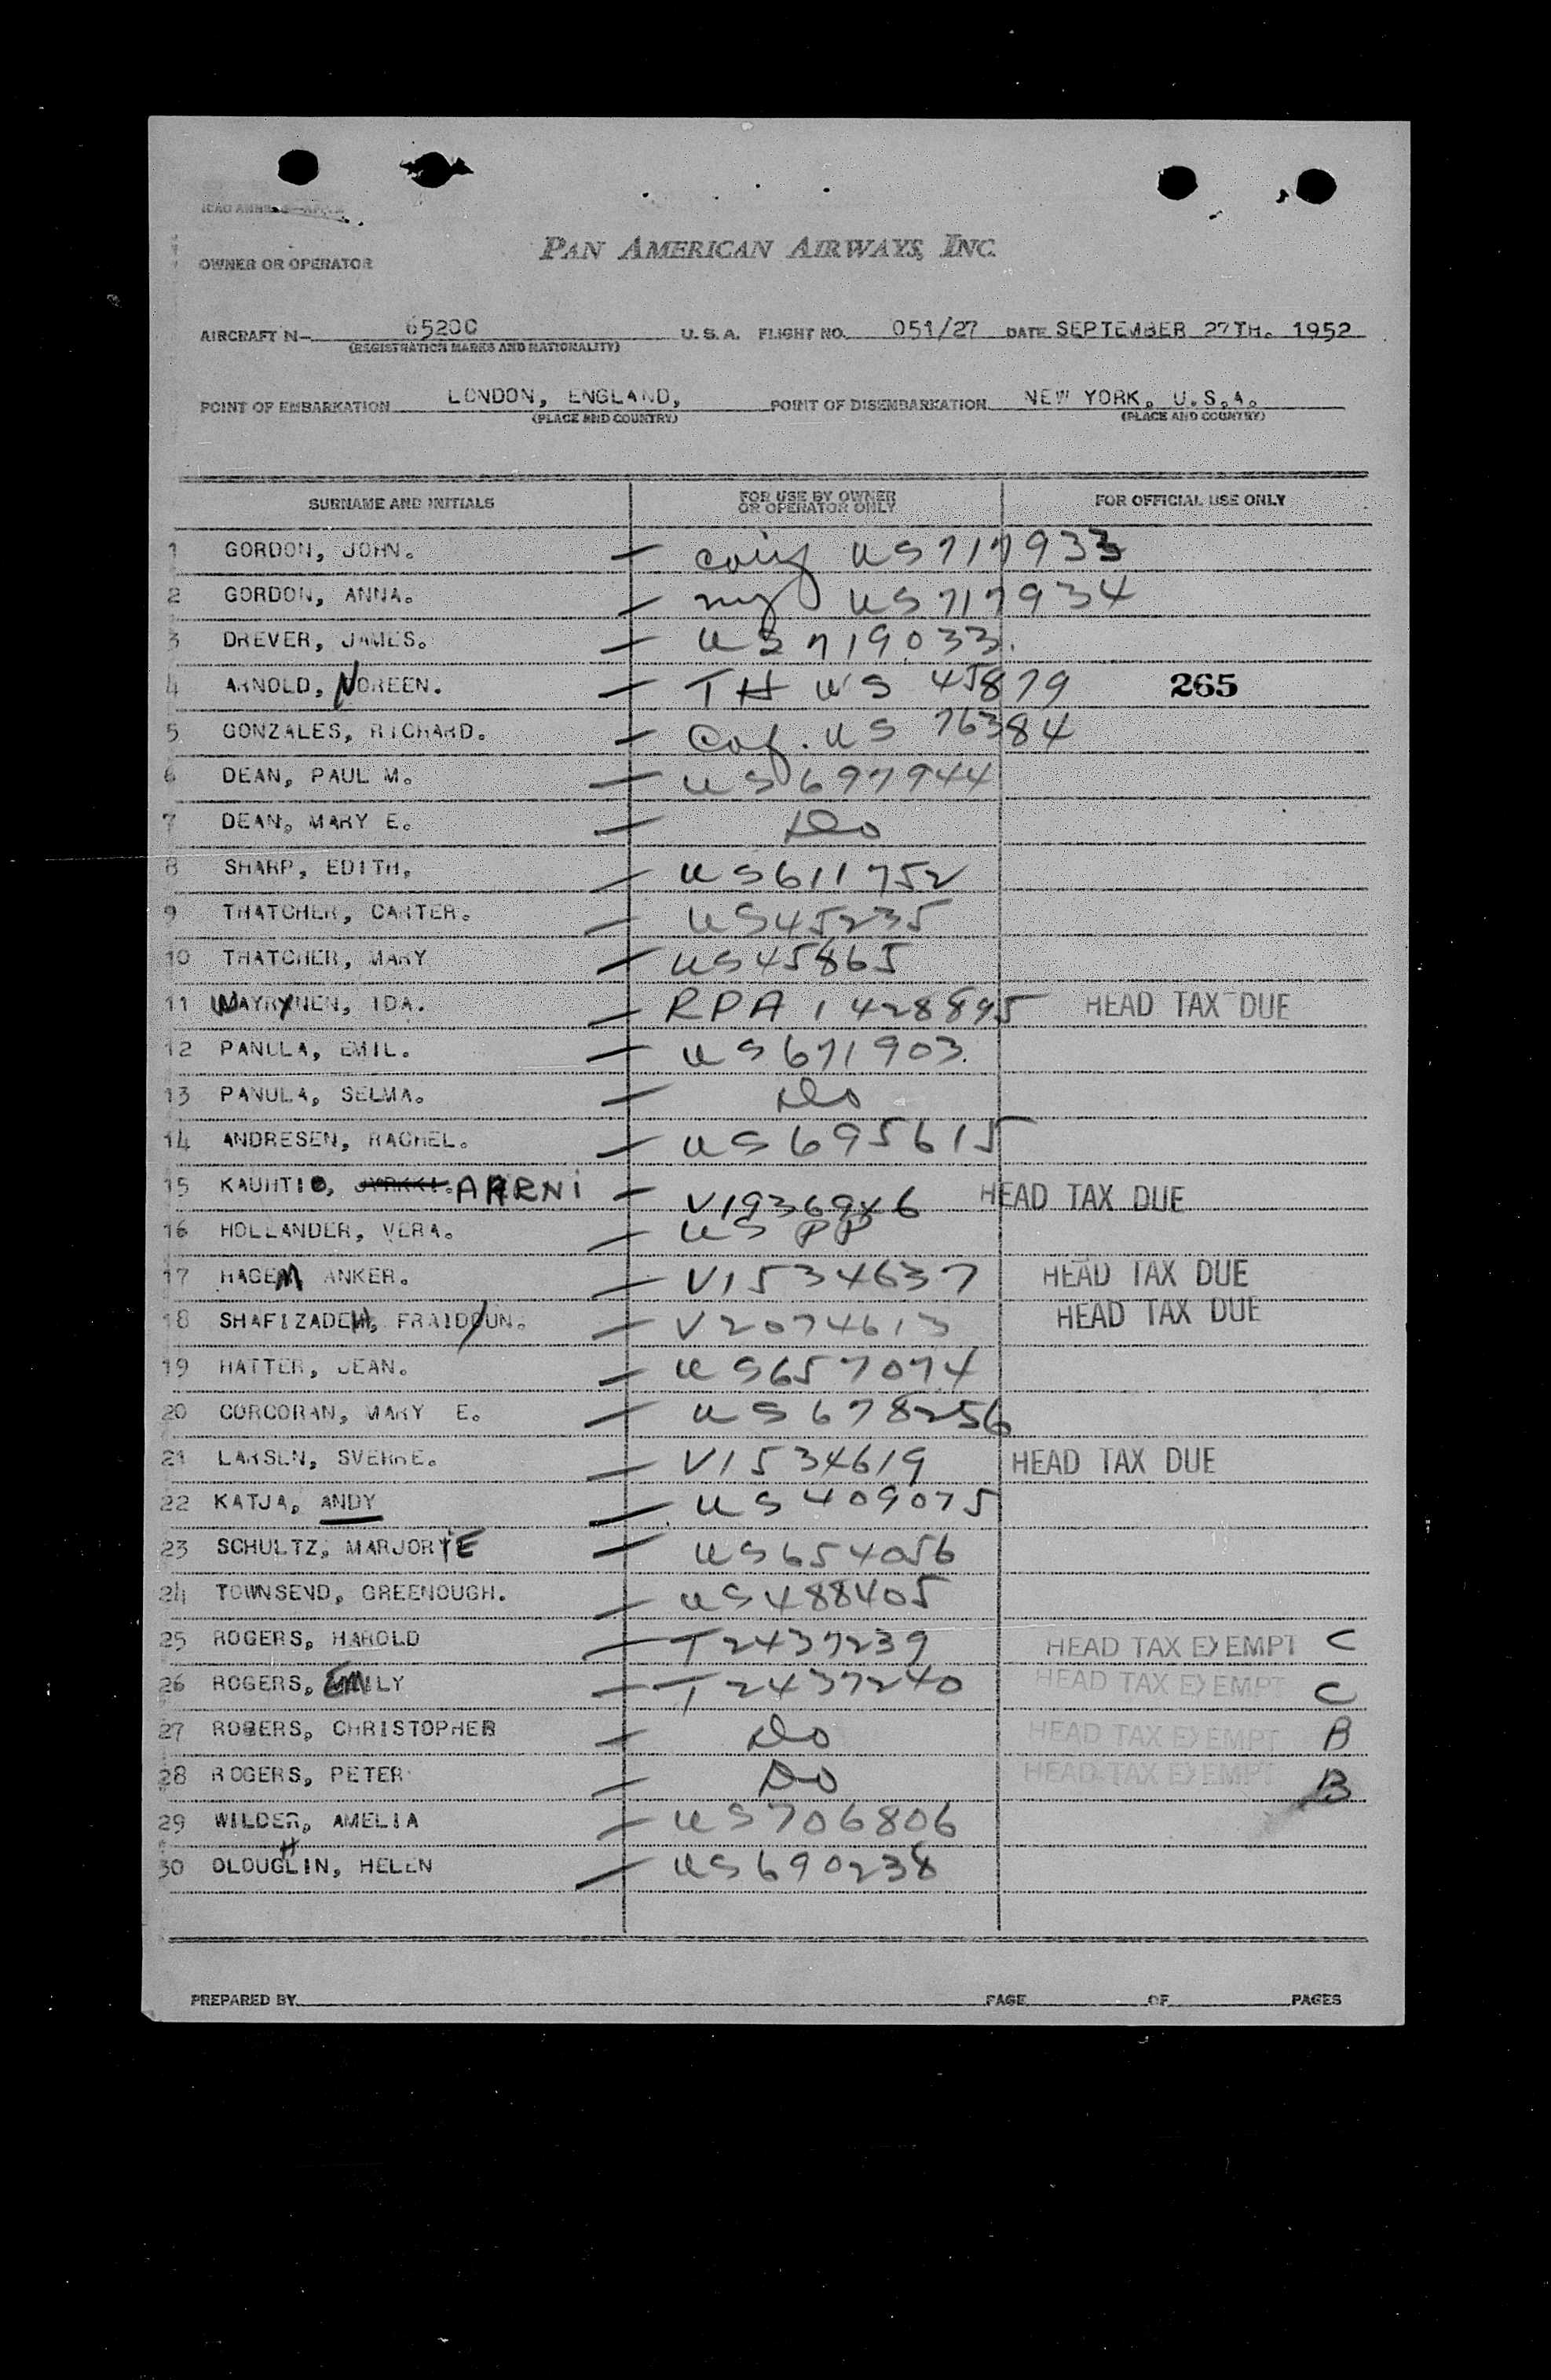 OWNER OR OPERATOR
PAN AMERICAN AIRWAYS, INC.
AIRCRAFT N- 6520C U.S.A. FLIGHT NO. 051/27 DATE SEPTEMBER 27TH. 1952
(REGISTRATION MARKS AND NATIONALITY)
POINT OF EMBARKATION LONDON, ENGLAND, POINT OF DISEMBARKATION NEW YORK, U.S.A.
(PLACE AND COUNTRY) (PLACE AND COUNTRY)
SURNAME AND INITIALS FOR USE BY OWNER OR OPERATOR ONLY FOR OFFICIAL USE ONLY
1 GORDON, JOHN. — US 717933
2 GORDON, ANNA. — US 717934
3 DREVER, JAMES. — US 719033.
4 ARNOLD, NOREEN. — TH US 45879 265
5 GONZALES, RICHARD. — US 76384
6 DEAN, PAUL M. — US 697944
7 DEAN, MARY E. — Do
8 SHARP, EDITH. — US 611752
9 THATCHER, CARTER. — US 45235
10 THATCHER, MARY — US 45865
11 WAYRYNEN, IDA. — RPA 1428895 HEAD TAX DUE
12 PANULA, EMIL. — US 671903.
13 PANULA, SELMA. — Do
14 ANDRESEN, RACHEL. — US 695615
15 KAUHTIO, JYRKKI. AARNI — V1936946 HEAD TAX DUE
16 HOLLANDER, VERA. — US PP
17 HAGEM ANKER. — V1534637 HEAD TAX DUE
18 SHAFIZADEH, FRAIDOUN. — V2074613 HEAD TAX DUE
19 HATTER, JEAN. — US 657074
20 CORCORAN, MARY E. — US 678256
21 LARSEN, SVERRE. — V1534619 HEAD TAX DUE
22 KATJA, ANDY — US 409075
23 SCHULTZ, MARJORIE — US 654056
24 TOWNSEND, GREENOUGH. — US 488405
25 ROGERS, HAROLD — T2437239 HEAD TAX EXEMPT C
26 ROGERS, EMILY — T2437240 HEAD TAX EXEMPT C
27 ROGERS, CHRISTOPHER — Do HEAD TAX EXEMPT B
28 ROGERS, PETER — Do HEAD TAX EXEMPT B
29 WILDER, AMELIA — US 706806
30 OLOUGHLIN, HELEN — US 690238
PREPARED BY PAGE OF PAGES